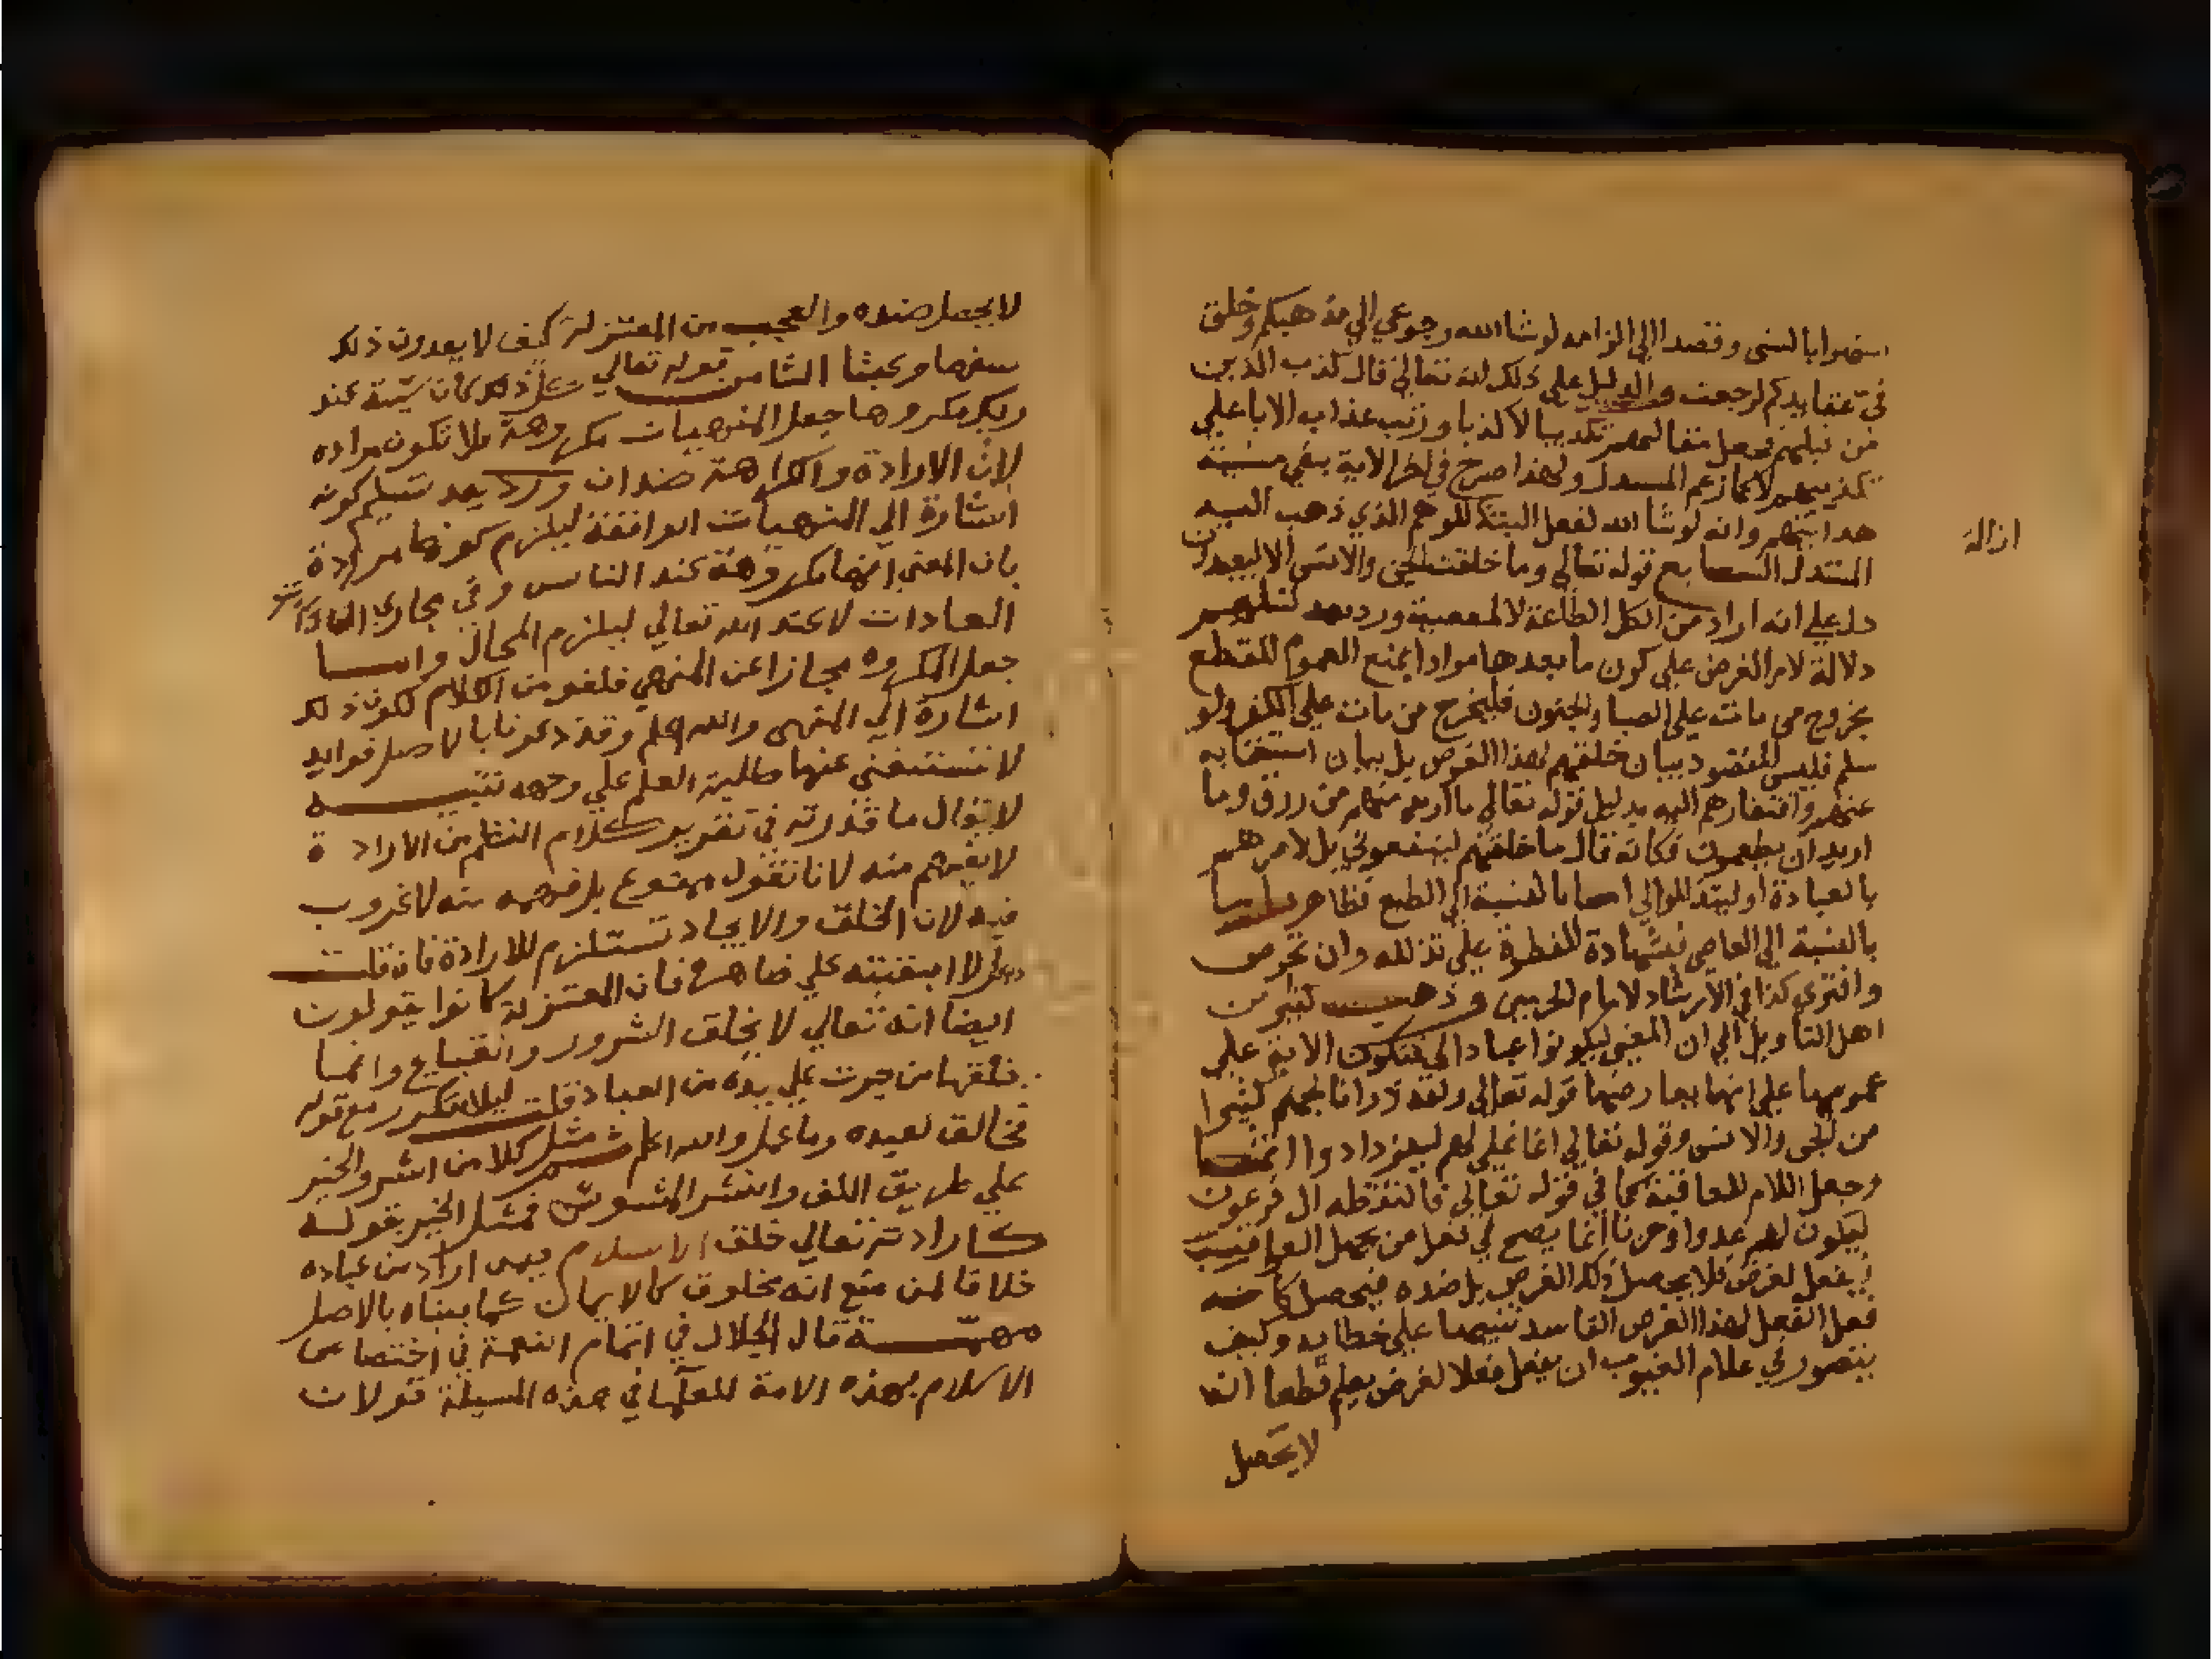 استهزوا بالنبي وقصدا الي الزامه لو شا الله رجوعي الي مذهبكم وخلق
في عقايدكم لرجعت والدليل علي ذلك انه تعالي قال كذب الذين
من قبلهم فجعل مقالتهم تكذيبا لا كذبا ورتب عذاب الابا علي
تكذيبهم لا كما زعم المستدل ولهذا صرح في اخر الاية بنفي مشيته
هدايتهم وانه لو شا الله لفعل البتة للوهم الذي ذهب اليه
ازالة
المستدل السابع قوله تعالي وما خلقت الجن والانس الا ليعبدون
دل علي انه اراد من الكل الطاعة لا المعصية ورد بعد تسليم
دلالة لام الغرض علي كون ما بعدها مرادا يمنع العموم للقطع
بخروج من مات علي الصبا والجنون فليخرج من مات علي الكفر ولو
سلم فليس المقصود بيان خلقهم لهذا الغرض بل بيان استغنايه
عنهم وافتقارهم اليه بدليل قوله تعالي ما اريد منهم من رزق وما
اريد ان يطعمون فكانه قال ما خلقتهم لينفعوني بل لامرهم
بالعبادة او ليتذللوا لي اما بالنسبة الي الطيع فظاهر واما
بالنسبة الي العاصي فبشهادة الفطرة علي تذلله وان تخرص
وافترى كذا في الارشاد لامام الحرمين وذهب كثير من
اهل التاويل الي ان المعني ليكونوا عبادا لي فتكون الاية علي
عمومها علي انها يعارضها قوله تعالي ولقد ذرانا لجهنم كثيرا
من الجن والانس وقوله تعالي انما نملي لهم ليزدادوا اثما
وجعل اللام للعاقبة كما في قوله تعالي فالتقطه ال فرعون
ليكون لهم عدوا وحزنا انما يصح في فعل من يجهل العواقب
فيفعل لغرض فلا يحصل ذلك الغرض بل ضده فيحصل كانه
فعل الفعل لهذا الغرض الفاسد تنبيها علي خطايه وكيف
يتصور في علام الغيوب ان يفعل فعلا لغرض يعلم قطعا انه
لا يحصل
لا يحصل ضده والعجب من المعتزلة كيف لا يعدون ذلك
سفها وعبثا الثامن قوله تعالي كل ذلك كان سيئة عند
ربك مكروها جعل المنهيات مكروهة فلا تكون مراده
لان الارادة والكراهة ضدان ورد بعد تسليم كونه
اشارة الي المنهيات الواقعة ليلزم كونها مرادة
بان المعني انها مكروهة عند الناس وفي مجاري
العادات لا عند الله تعالي ليلزم المحال واما
جعل المكروه مجازا عن المنهي فلغو من الكلام لكون ذلك
اشارة الي المنهى والله اعلم وقد دعونا بالاصل فوايد
لا تستغني عنها طلبة العلم علي وجهه تنبيه
لا يقال ما قررته في تقرير كلام النظم من الارادة
لا يفهم منه لانا نقول ممنوع بل فهمه منه لا غروب
فيه لان الخلق والايجاد تستلزم للارادة فان قلت
هلا ابقيته علي ظاهره فان المعتزلة كانوا يقولون
ايضا انه تعالي لا يخلق الشرور والقبايح وانما
خلقها من جرت علي يده من العباد قلت ليلا تكرر مع قوله
فخالق لعبده وما عمل والله اعلم ثم مثل كلا من الشر والخير
علي طريق اللف والنشر المشوش فمثل الخير بقوله
كارادته تعالي خلق الاسلام فيمن اراد من عباده
خلافا لمن منع انه مخلوق كالايمان كما بيناه بالاصل
مهمة قال الجلال في اتمام النعمة في اختصاص
الاسلام بهذه الامة للعلما في هذه المسيلة قولان